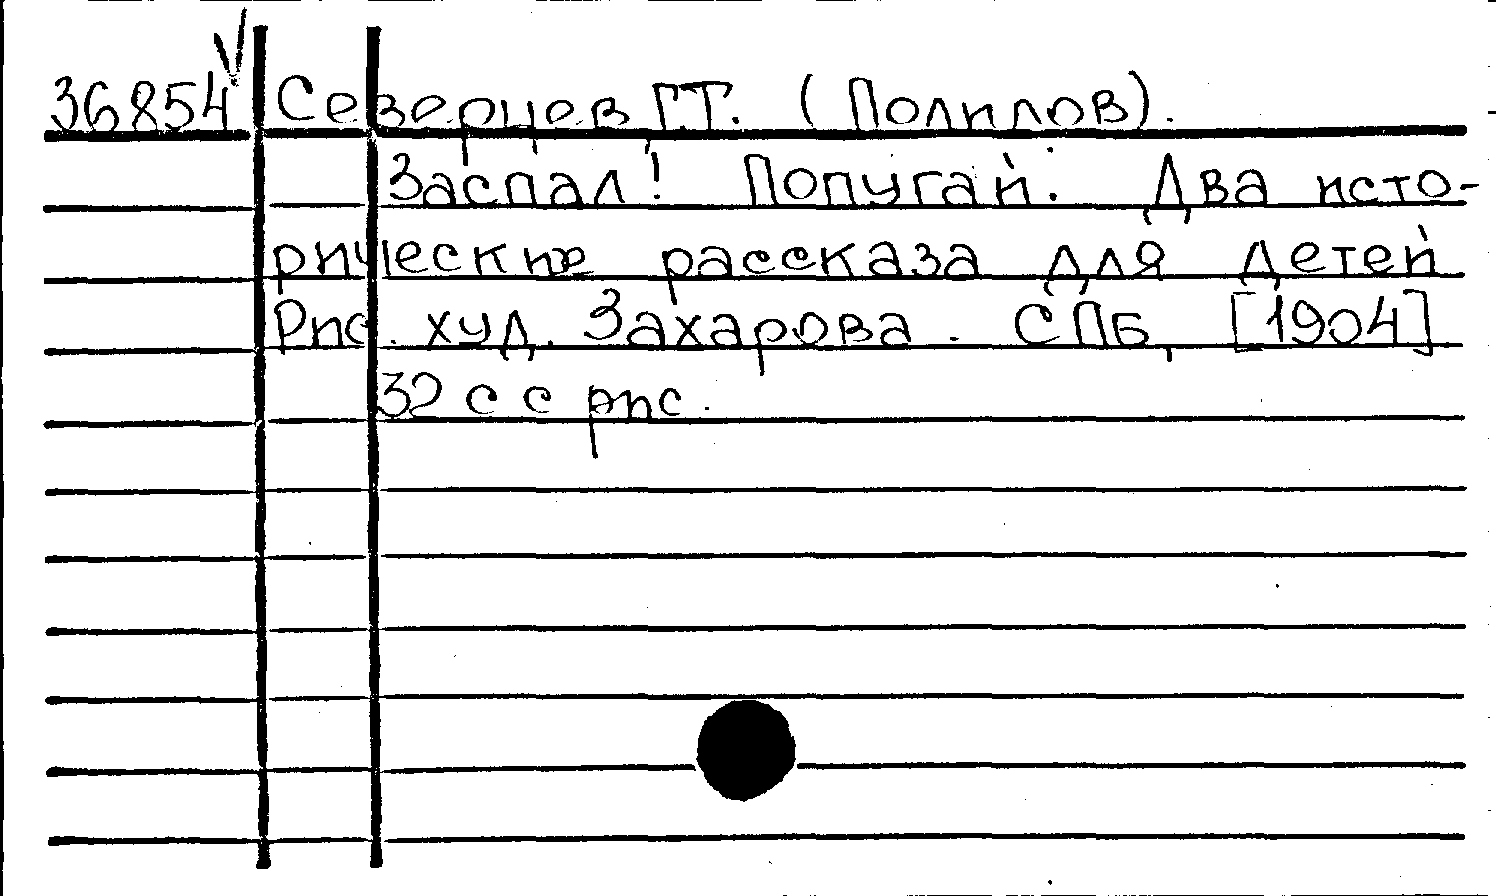 36854 Северцев Г.Т. (Полилов).
Заспал! Попугай. Два исто-
рические рассказа для детей
Рис. худ. Захарова. СПБ, [1904]
32 с с рис.